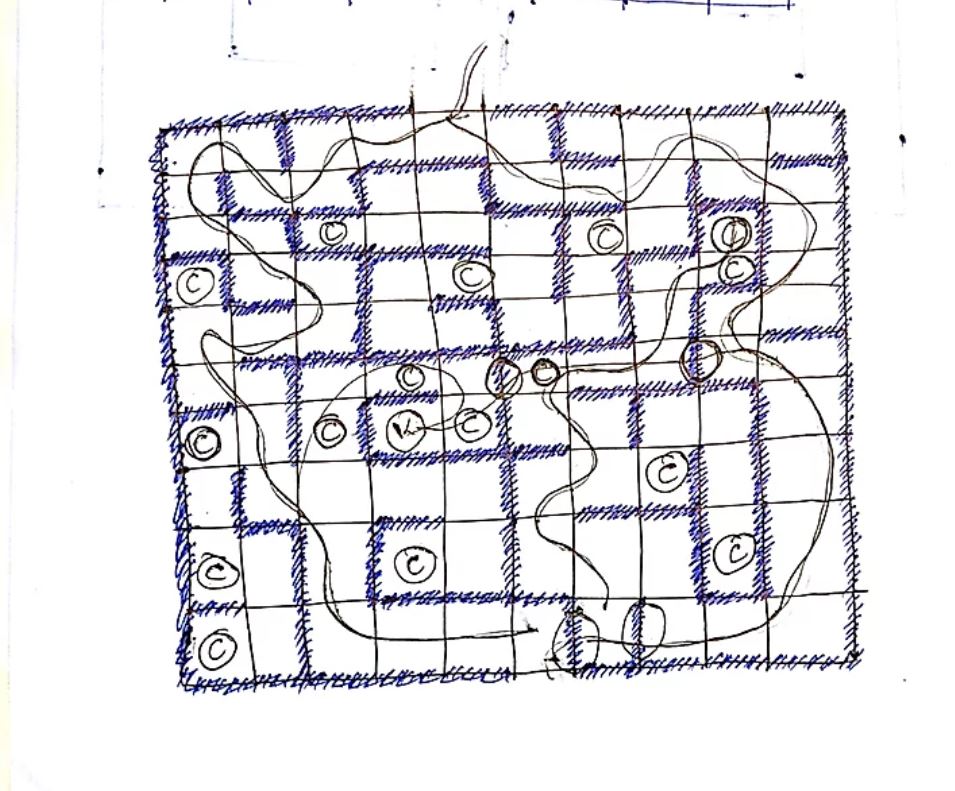 C C
C C C
C
C C K C
C
C C C
C